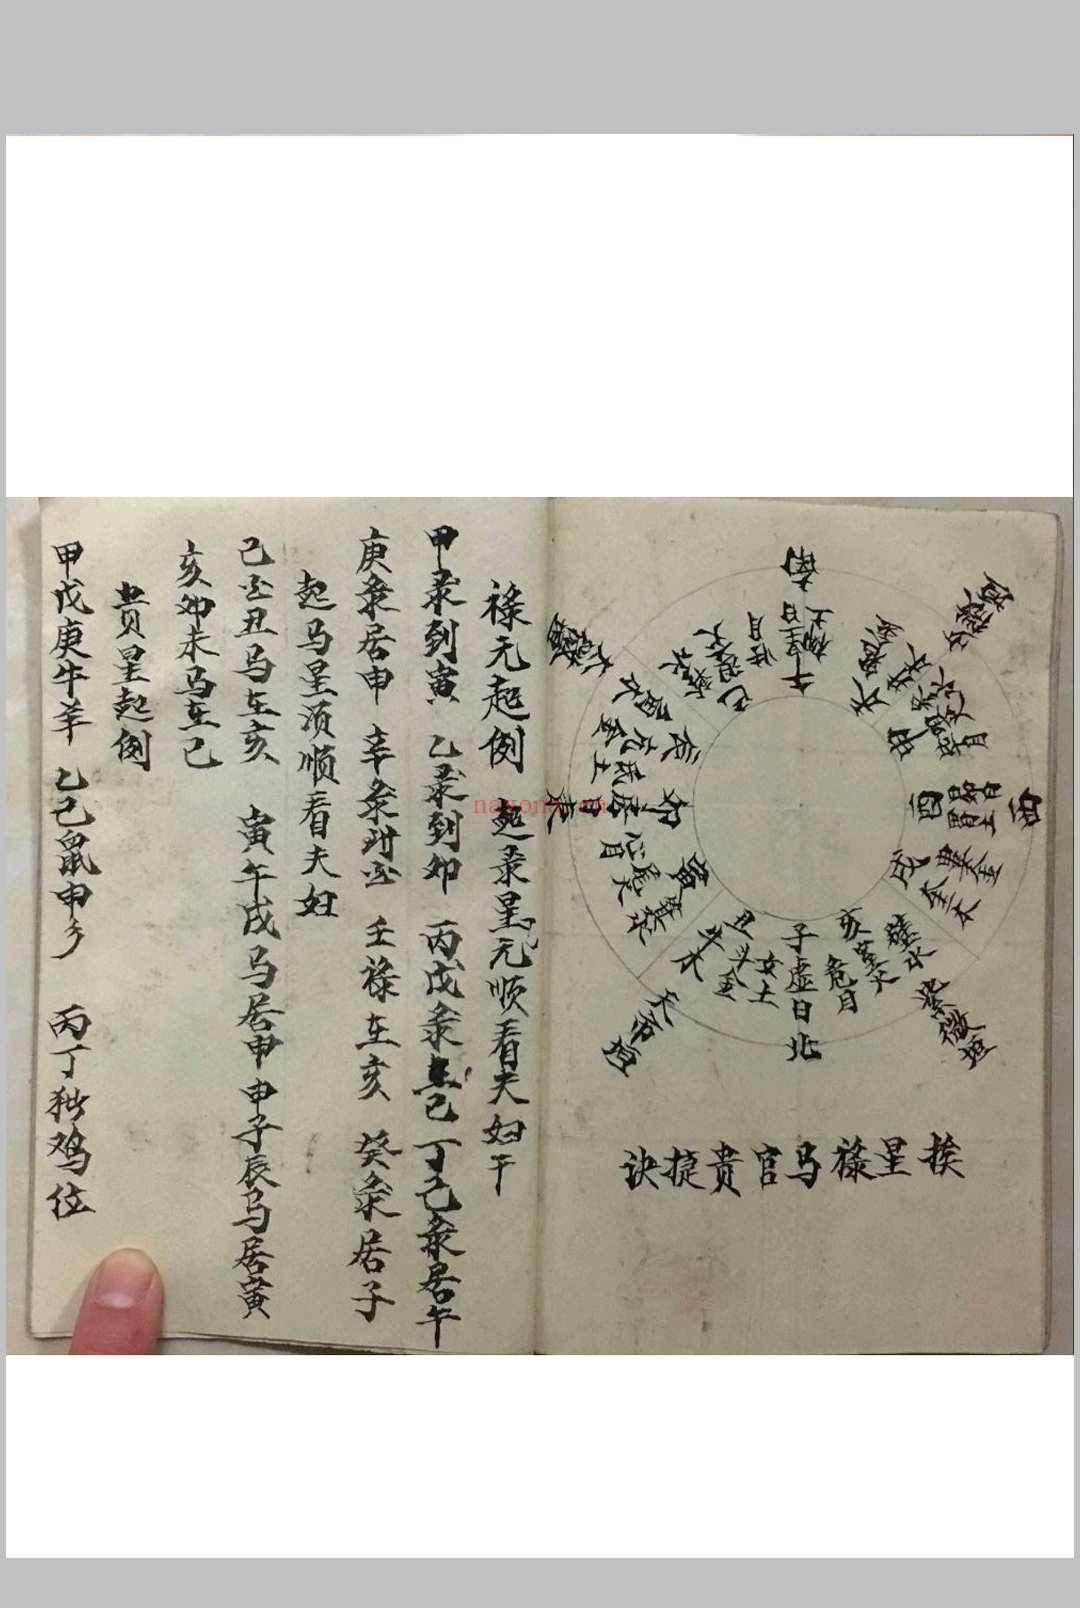 挨星禄马官贵捷诀
南
午
星日
北
子
虚日
女土
危月
亥
室火
壁水
紫微垣
天市垣
丑
牛
斗
寅
尾火
心月
卯
房日
东
氐土
亢金
辰
巳
未
申
酉
昴日
胃土
西
戌
娄金
奎木
禄元起例 起录星元顺看夫妇干
甲录到寅 乙录到卯 丙戊彔巳 丁己彔居午
庚彔居申 辛彔对酉 壬禄在亥 癸彔居子
起马星须顺看夫妇
巳酉丑马在亥 寅午戌马居申 申子辰马居寅
亥卯未马在巳
贵星起例
甲戊庚牛羊 乙己鼠申乡 丙丁猪鸡位
nayona.cn